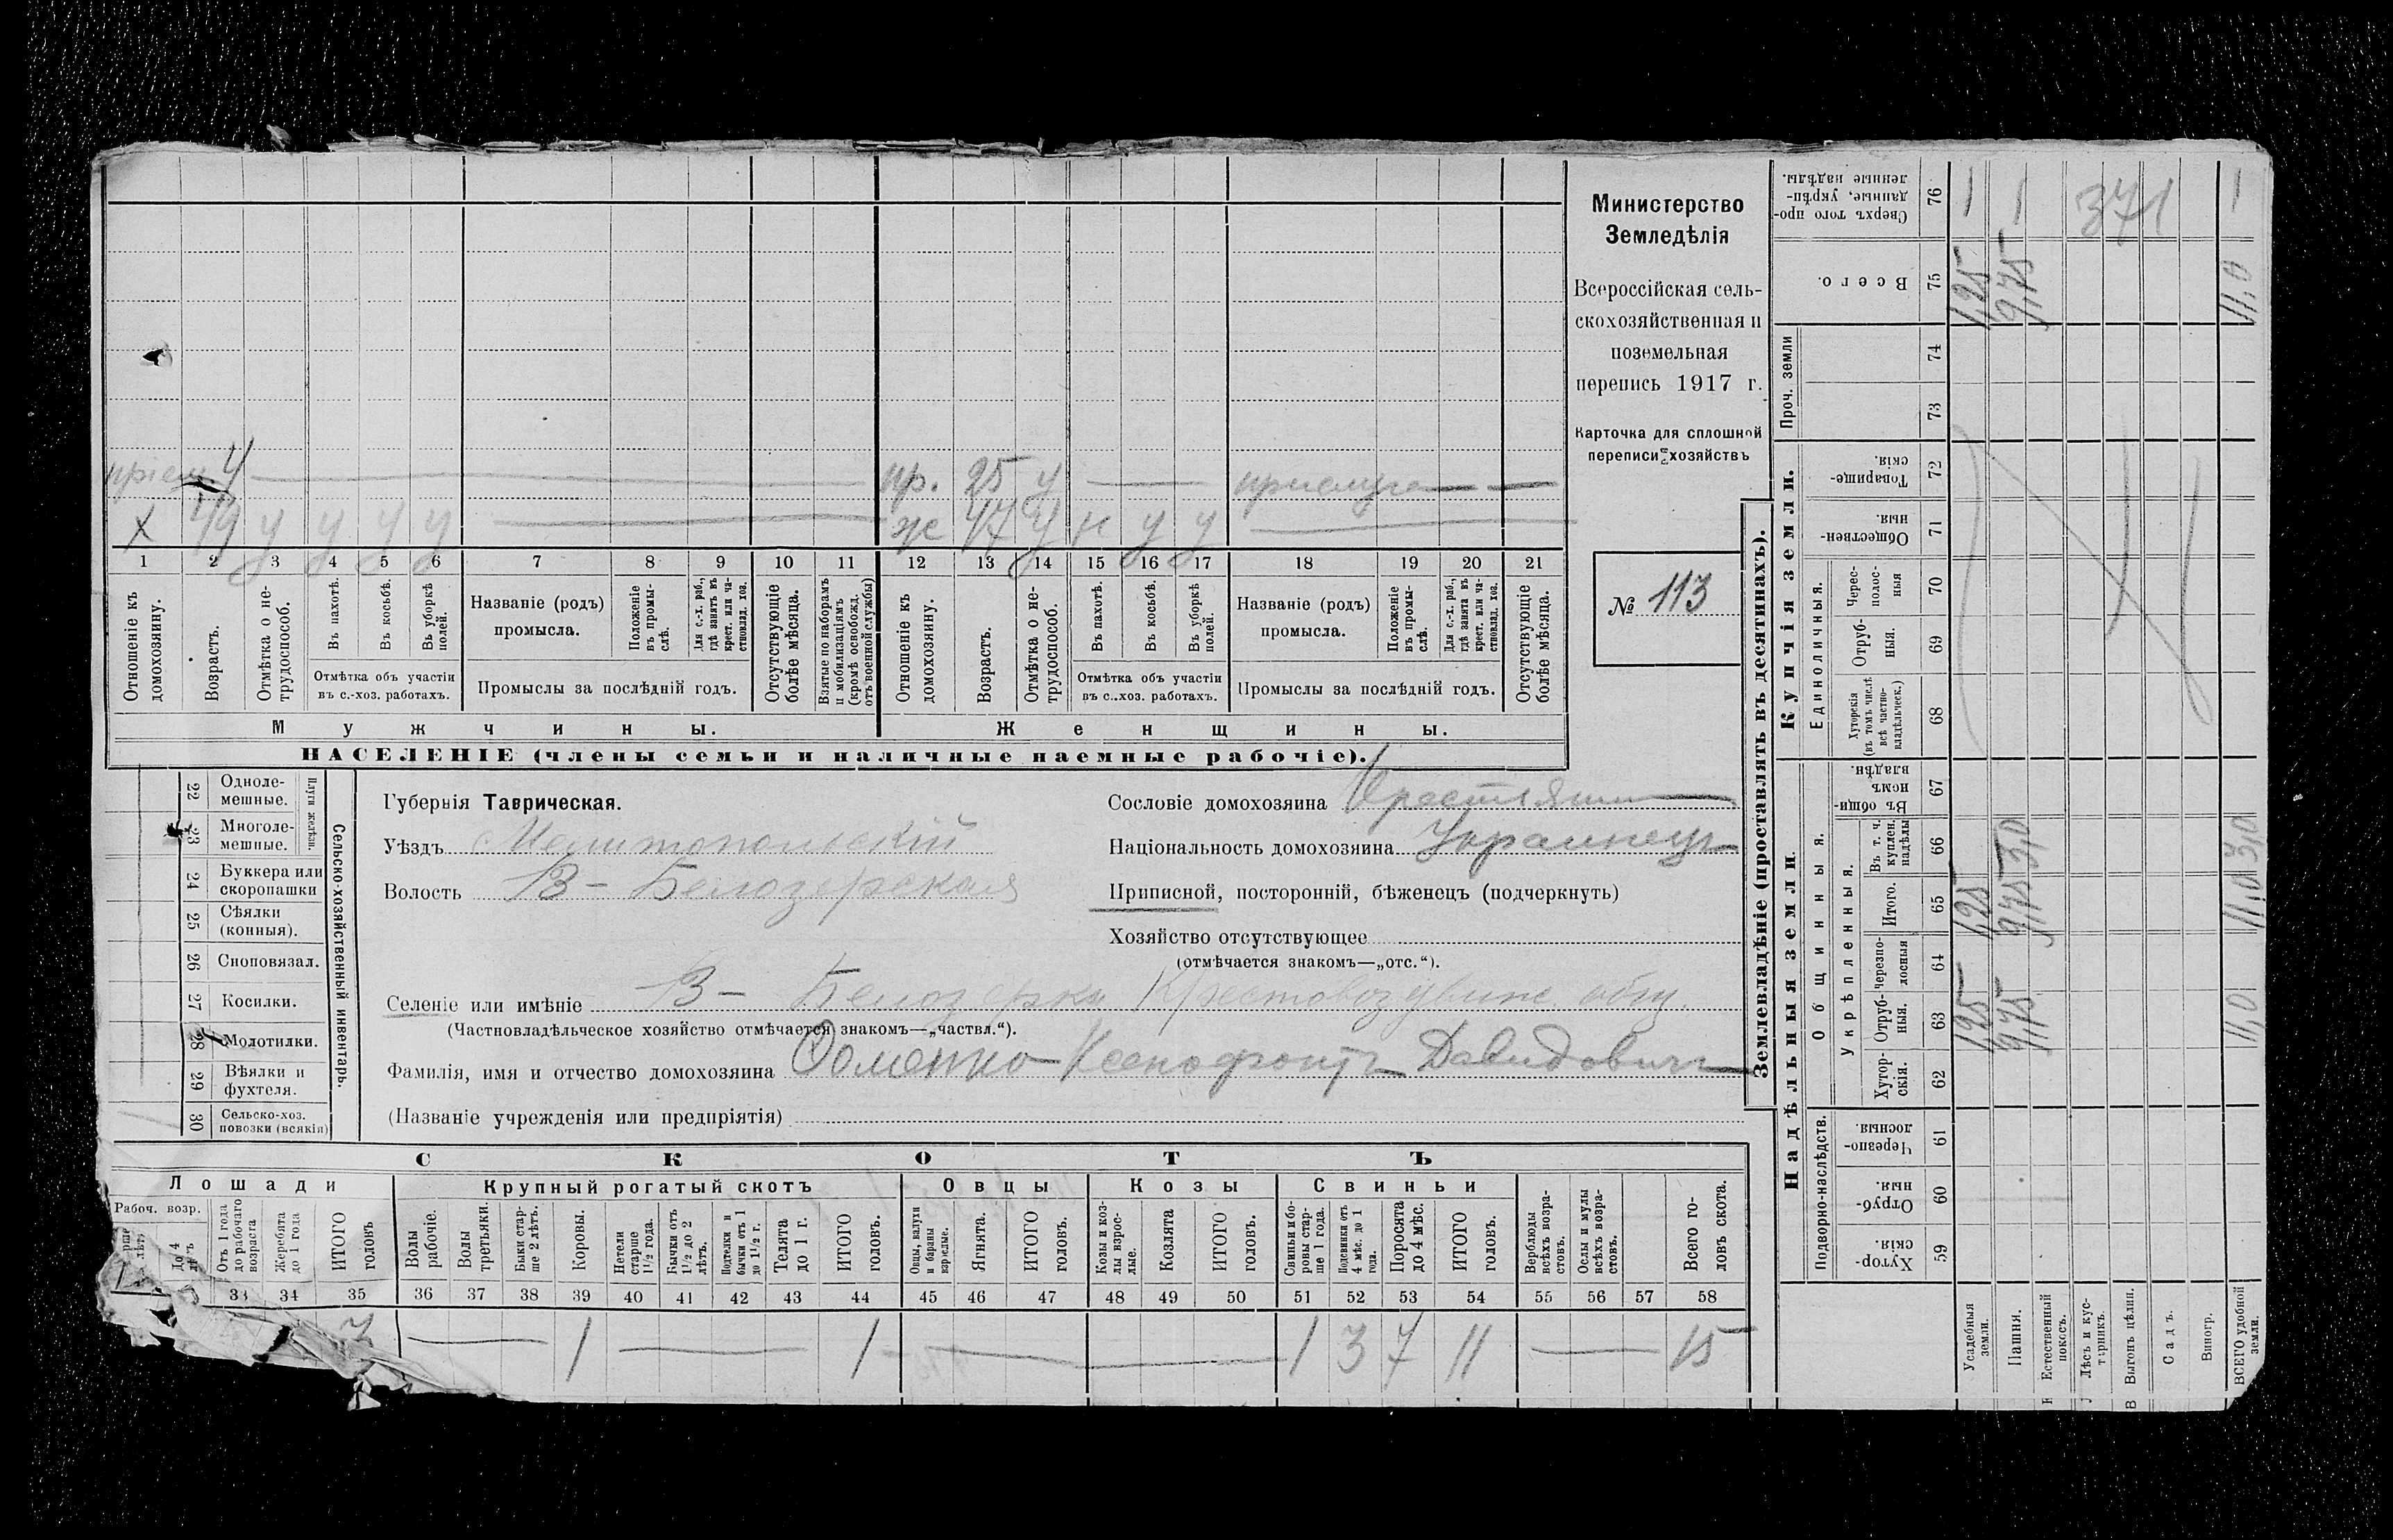 Министерство
Земледѣлія
Всероссійская сель-
скохозяйственная и
поземельная
перепись 1917 г.
Карточка для сплошной
переписи хозяйствъ
№ 113
пріем. 4 пр. 25 у
X 49 у у у у ж 47 у н у у
1 2 3 4 5 6 7 8 9 10 11 12 13 14 15 16 17 18 19 20 21
Отношеніе къ домохозяину.
Возрастъ.
Отмѣтка о не-трудоспособ.
Въ пахотѣ.
Въ косьбѣ.
Въ уборкѣ полей.
Отмѣтка объ участіи
въ с.-хоз. работахъ.
Названіе (родъ)
промысла.
Положеніе въ промы-слѣ.
Для с.-х. раб., гдѣ занятъ въ крест. или ча-стновлад. хоз.
Промыслы за послѣдній годъ.
Отсутствующіе болѣе мѣсяца.
Взятые по наборамъ и мобилизаціямъ (кромѣ освобожд. отъ военной службы)
Отношеніе къ домохозяину.
Возрастъ.
Отмѣтка о не-трудоспособ.
Въ пахотѣ.
Въ косьбѣ.
Въ уборкѣ полей.
Отмѣтка объ участіи
въ с.-хоз. работахъ.
Названіе (родъ)
промысла.
Положеніе въ промы-слѣ.
Для с.-х. раб., гдѣ занята въ крест. или ча-стновлад. хоз.
Промыслы за послѣдній годъ.
Отсутствующіе болѣе мѣсяца.
Мужчины. Женщины.
НАСЕЛЕНІЕ (члены семьи и наличные наемные рабочіе).
Сельско-хозяйственный инвентарь.
Плуги желѣзн.
22 Одноле-мешные.
23 Многоле-мешные.
24 Буккера или скоропашки
25 Сѣялки (конныя).
26 Сноповязал.
27 Косилки.
28 Молотилки.
29 Вѣялки и фухтеля.
30 Сельско-хоз. повозки (всякія)
Губернія Таврическая.
Уѣздъ Мелитопольскій
Волость В - Белозерская
Селеніе или имѣніе В - Белозерка Крестовоздвиж. общ.
(Частновладѣльческое хозяйство отмѣчается знакомъ—„частвл.“).
Фамилія, имя и отчество домохозяина Ксенофонтъ Давидовичъ
(Названіе учрежденія или предпріятія)
Сословіе домохозяина Крестьянин
Національность домохозяина Украинецъ
Приписной, посторонній, бѣженецъ (подчеркнуть)
Хозяйство отсутствующее
(отмѣчается знакомъ—„отс.“).
СКОТЪ
Лошади Крупный рогатый скотъ Овцы Козы Свиньи
Рабоч. возр.
До 4 лѣтъ
Отъ 1 года до рабочаго возраста
Жеребята до 1 года
ИТОГО головъ
Волы рабочіе.
Волы третьяки.
Быки стар-ше 2 лѣтъ.
Коровы.
Нетели старше 1½ года.
Бычки отъ 1½ до 2 лѣтъ.
Подтелки и бычки отъ 1 до 1½ г.
Телята до 1 г.
ИТОГО головъ.
Овцы, валухи и бараны взрослые.
Ягнята.
ИТОГО головъ.
Козы и коз-лы взрос-лые.
Козлята
ИТОГО головъ.
Свиньи и бо-ровы стар-ше 1 года.
Подсвинки отъ 4 мѣс. до 1 года.
Поросята до 4 мѣс.
ИТОГО головъ.
Верблюды всѣхъ возра-стовъ.
Ослы и мулы всѣхъ возра-стовъ.
Всего го-ловъ скота.
33 34 35 36 37 38 39 40 41 42 43 44 45 46 47 48 49 50 51 52 53 54 55 56 57 58
3 1 1 1 3 7 11 15
Землевладѣніе (проставлять въ десятинахъ).
Надѣльныя земли.
Купчія земли.
Проч. земли
Подворно-наслѣдств.
Общинныя.
Укрѣпленныя.
Единоличныя.
59 Хутор-скія.
60 Отруб-ныя.
61 Черезпо-лосныя.
62 Хутор-скія.
63 Отруб-ныя. 1,25 9,75 11,0
64 Черезпо-лосныя
65 Итого. 1,25 9,75 11,0
66 Въ т. ч. куплен. надѣлы 3,0 3,0
67 Въ общин-номъ владѣн.
68 Хуторскія (въ томъ числѣ всѣ частно-владѣльческ.)
69 Отруб-ныя.
70 Черес-полос-ныя
71 Обществен-ныя.
72 Товарище-скія.
73
74
75 Всего. 1,25 9,75 11,0
76 Сверхъ того про-данные, укрѣп-ленные надѣлы.
371
Усадебныя земли.
Пашня.
Естественный покосъ.
Лѣсъ и кус-тарникъ.
Выгонъ цѣлин.
Садъ.
Виногр.
ВСЕГО удобной земли.